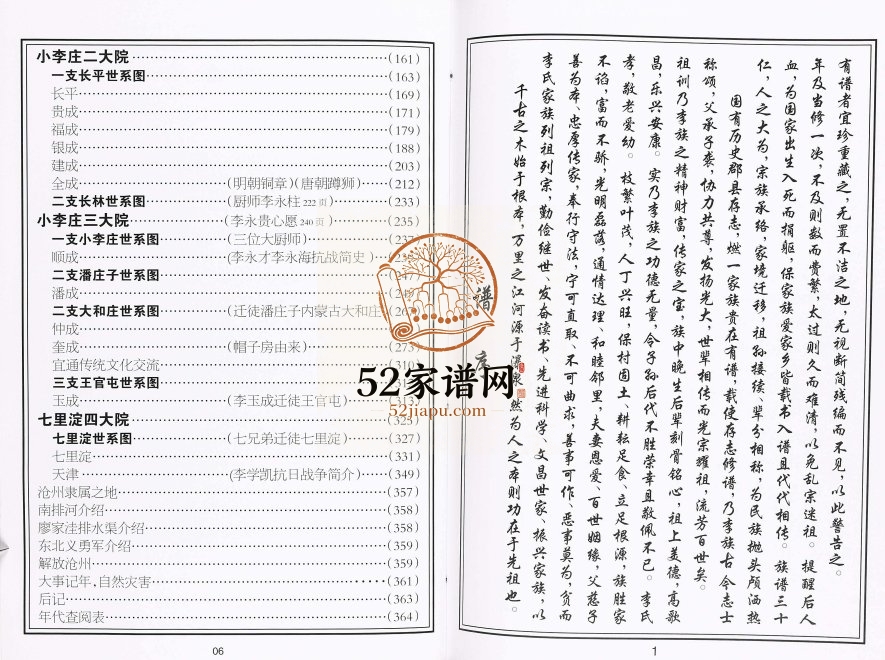 小李庄二大院(161)
一支长平世系图(163)
长平(169)
贵成(171)
福成(179)
银成(188)
建成(203)
全成(明朝铜章)(唐朝蹲狮)(212)
二支长林世系图(厨师李永柱222页)(233)
小李庄三大院(李永贵心愿240页)(235)
一支小李庄世系图(三位大厨师)
顺成(李永才李永海抗战简史)
二支潘庄子世系图
潘成
二支大和庄世系图(迁徒潘庄子内蒙古大和庄
仲成
奎成(帽子房由来)(273)
宜通传统文化交流
三支王官屯世系图
玉成(李玉成迁徒王官屯)(313)
七里淀四大院(325)
七里淀世系图(七兄弟迁徒七里淀)(327)
七里淀(331)
天津(李学凯抗日战争简介)(349)
沧州隶属之地(357)
南排河介绍(358)
廖家洼排水渠介绍(358)
东北义勇军介绍(359)
解放沧州(359)
大事记年,自然灾害(361)
后记(363)
年代查阅表(364)
06
52家谱网
52jiapu.com
谱序
千古之木始于根本,万里之江河源于深泉,然为人之本则功在于先祖也。
李氏家族列祖列宗,勤俭继世、发奋读书、先进科学、文昌世家、振兴家族,以
善为本、忠厚传家,奉行守法,宁可直取、不可曲求,善事可作、恶事莫为,贫而
不谄,富而不骄,光明磊落,通情达理、和睦邻里,夫妻恩爱、百世姻缘,父慈子
孝,敬老爱幼。枝繁叶茂,人丁兴旺,保村固土、耕耘足食、立足根源,族胜家
昌,乐兴安康。实乃李族之功德无量,令子孙后代不胜荣幸且敬佩不已。李氏
祖训乃李族之精神财富,传家之宝,族中晚生后辈刻骨铭心,祖上美德,高歌
称颂,父承子袭,协力共尊,发扬光大,世辈相传而光宗耀祖,流芳百世矣。
国有历史郡县存志,燃一家族贵在有谱,载使存志修谱,乃李族古今志士
仁,人之大为,宗族承络,家境迁移,祖孙接续、辈分相称,为民族抛头颅洒热
血,为国家出生入死而捐躯,保家族爱家乡皆载书入谱且代代相传。族谱三十
年及当修一次,不及则数而费繁,太过则久而难清,以免乱宗迷祖。提醒后人
有谱者宜珍重藏之,无置不洁之地,无视断简残编而不见,以此警告之。
1